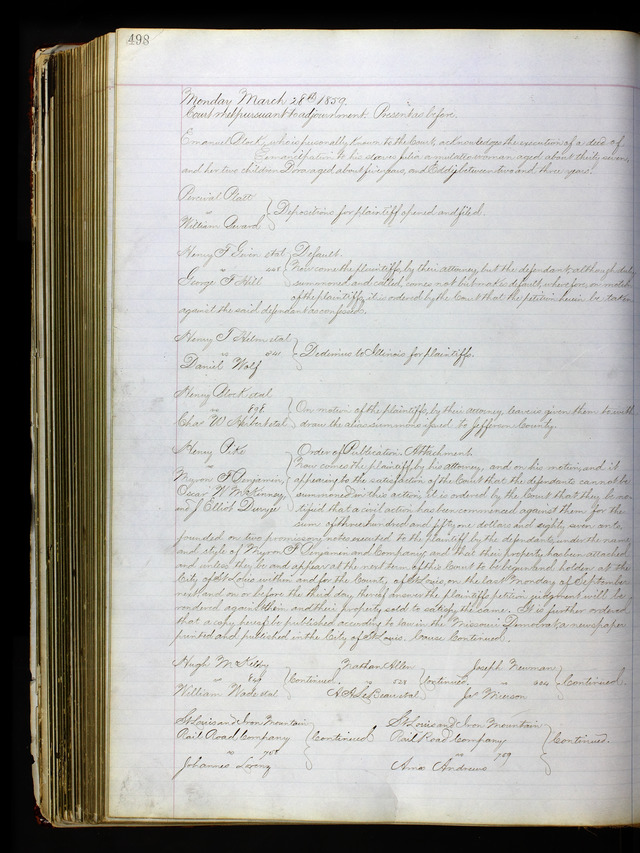 498
Monday March 28th 1859.
Court met pursuant to adjournment. Present as before.
Emanuel Block, who is personally known to the Court, acknowledges the execution of a deed of
Emancipation to his slaves Julia a mulatto woman aged about thirty seven,
and her two children Dora aged about five years, and Eddy between two and three years.
Percival Platt
"
William Seward
Depositions for plaintiff opened and filed.
Henry T
et al
"
George T Hill
Default.
Now come the plaintiffs by their attorney, but the defendant although duly
summoned and called, comes not but makes default, wherefore, on motion
of the plaintiffs, it is ordered by the Court that the petition herein be taken
against the said defendant as confessed.
Henry T Helm et al
"
Daniel Wolf
Dedimus to Illinois for plaintiffs.
Henry Block et al
" 898
Chas W et al
On motion of the plaintiffs, by their attorney, leave is given them to with
draw the alias summons issued to Jefferson County.
Henry Pike
"
Myron F Benjamin,
Oscar W McKinney
and J Elliot Duryé
Order of Publication. Attachment.
Now comes the plaintiff by his attorney, and on his motion, and it
appearing to the satisfaction of the Court that the defendants cannot be
summoned in this action, it is ordered by the Court that they be no
tified that a civil action has been commenced against them for the
sum of three hundred and fifty one dollars and eighty seven cents
founded on two promissory notes executed to the plaintiff by the defendants, under the name
and style of Myron F Benjamin and Company, and that their property has been attached
and unless they be and appear at the next term of this Court to be begun and holden at the
City of St Louis within and for the County of St Louis, on the last Monday of September
next and on or before the third day thereof answer the plaintiffs petition judgment will be
rendered against them and their property sold to satisfy the same. It is further ordered
that a copy hereof be published according to law in the Missouri Democrat, a newspaper
printed and published in the City of St Louis. Cause Continued.
Hugh McKelby
"
William Wade et al
Continued.
Nathan Allen
" 528
A A LeBeau et al
Continued.
Joseph Newman
"
Jas
Continued.
St Louis and Iron Mountain
Rail Road Company
" 708
Johannes Lorenz
Continued
St Louis and Iron Mountain
Rail Road Company
" 709
Amos Andrews
Continued.